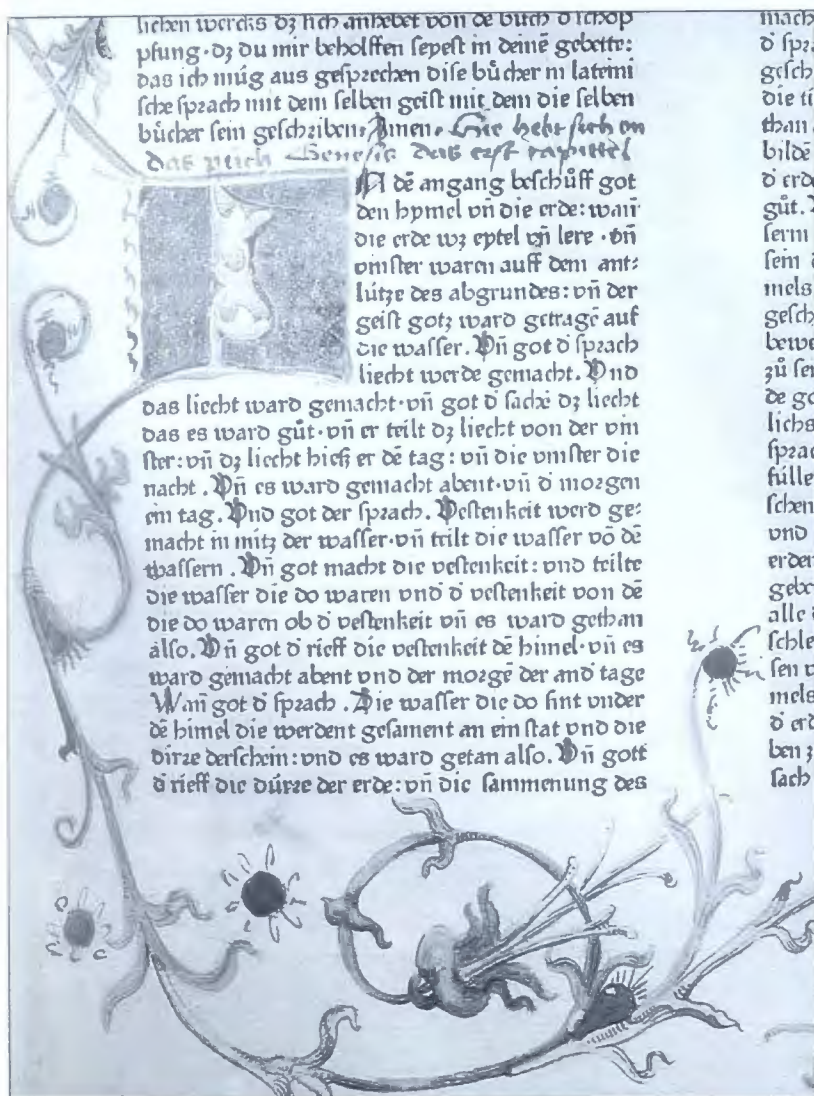 lichen wercks dz sich anhebet von de buch d schöp
pfung·dz du mir beholffen seyest in deinē gebette:
das ich müg aus gesprechen dise bůcher in lateini
sche sprach mit dem selben geist mit dem die selben
bůcher sein geschriben. Amen. Hie hebt sich an
das puch Genesis das erst capittel
IN dē angang beschůff got
den hymel vn̄ die erde: wan̄
die erde wz eytel vn̄ lere · vn̄
vinster waren auff dem ant:
lütze des abgrundes: vn̄ der
geist gotz ward getragē auf
die wasser. Vn̄ got d̓ sprach
liecht werde gemacht. Vnd
das liecht ward gemacht·vn̄ got d̓ sache dz liecht
das es ward gůt·vn̄ er teilt dz liecht von der vin
ster: vn̄ dz liecht hieß er dē tag: vn̄ die vinster die
nacht. Vn̄ es ward gemacht abent·vn̄ d̓ morgen
ein tag. Vnd got der sprach. Vestenkeit werd ge:
macht in mitz der wasser·vn̄ teilt die wasser vō dē
wassern. Vn̄ got macht die vestenkeit: vnd teilte
die wasser die do waren vnd d̓ vestenkeit von dē
die do waren ob d̓ vestenkeit vn̄ es ward gethan
also. Vn̄ got d̓ rieff die vestenkeit dē himel·vn̄ es
ward gemacht abent vnd der morgē der and̓ tage
Wan̄ got d̓ sprach. Die wasser die do sint vnder
dē himel die werdent gesament an ein stat vnd die
dirre derschein: vnd es ward getan also. Vn̄ gott
d̓ rieff die dürre der erde: vn̄ die sammenung des
mach
d̓ spra
gesch
die ti
than
bildē
d̓ erde
gůt.
serm
sein
mels
gesch
bewe
zů ser
de go
lichs
sprac
fülle
schen
vnd
erden
gebe
alle d
schle
sen v
mels
d̓ erd
ben z
sach